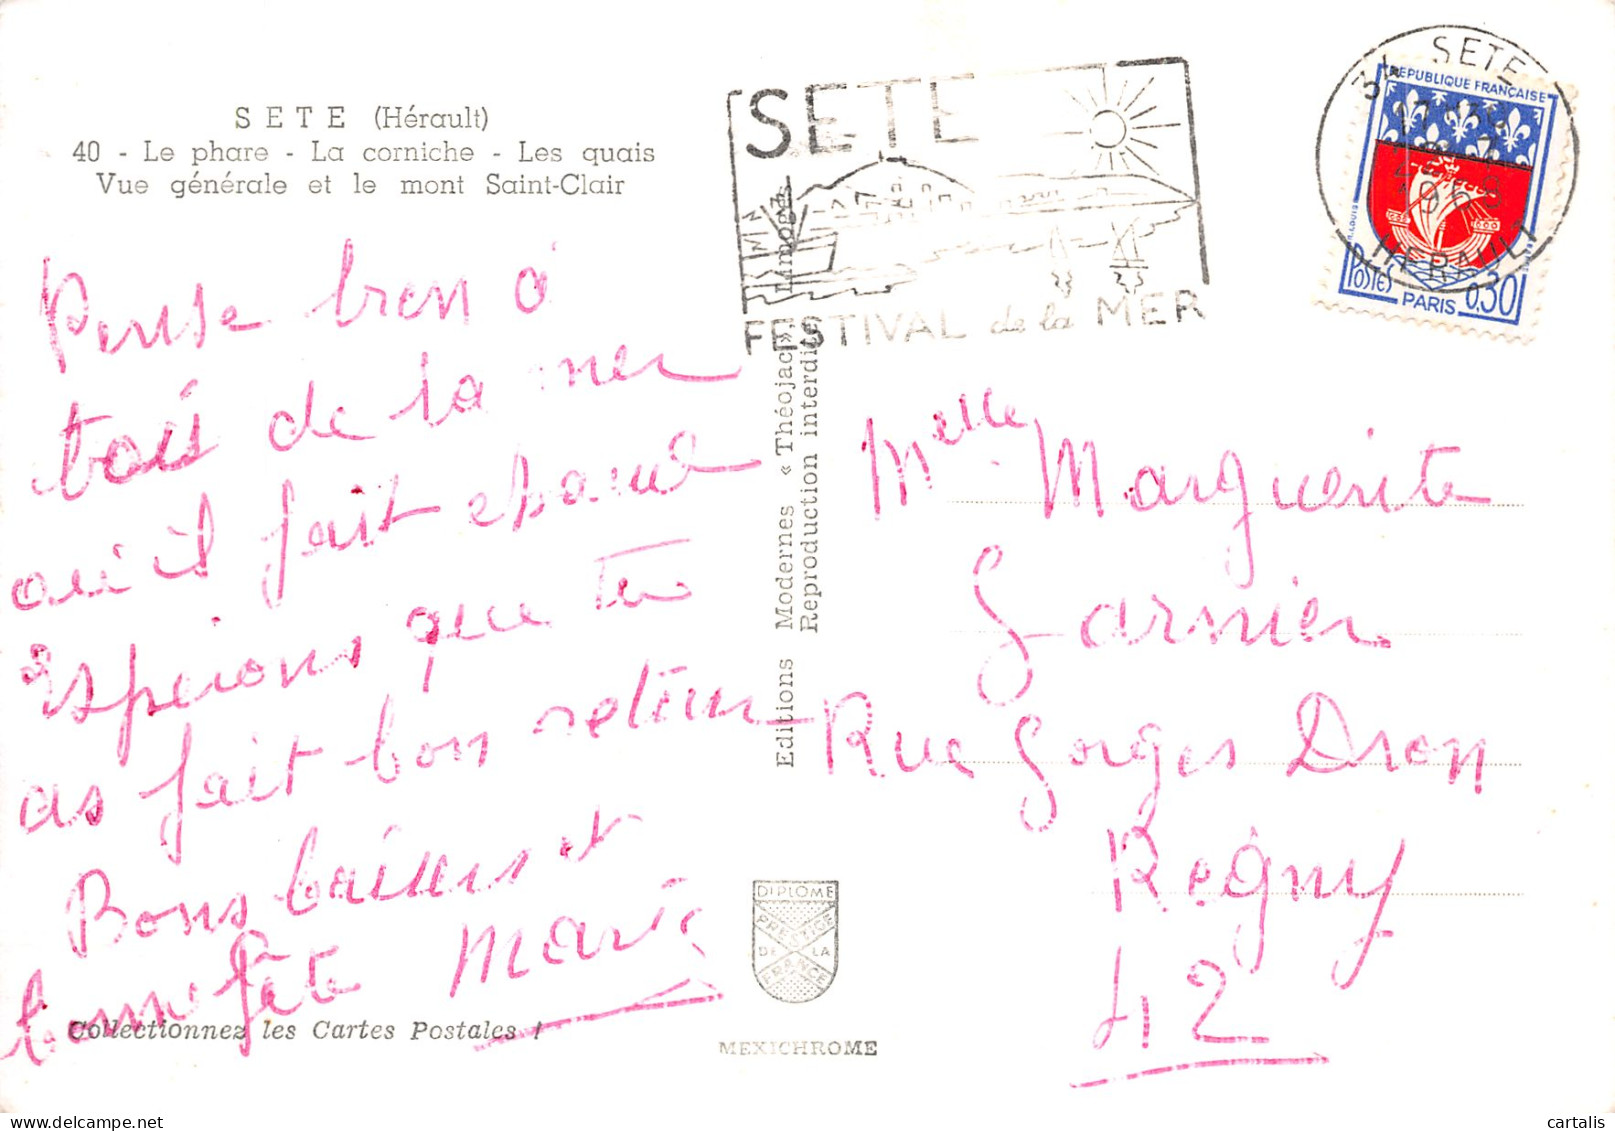 SETE (Hérault)
40 - Le phare - La corniche - Les quais
Vue générale et le mont Saint-Clair
Pense bien à
toi de la mer
où il fait chaud
Espérons que tu
as fait bon retour
Bons baisers et
bonne fête Marie
Collectionnez les Cartes Postales !
Editions Modernes « Théojac », Limoges
Reproduction interdite
DIPLOME
PRESTIGE
DE LA
FRANCE
MEXICHROME
SETE
FESTIVAL de la MER
34 SETE
17H30
1969
HERAULT
REPUBLIQUE FRANÇAISE
POSTES
PARIS
0,30
Melle Marguerite
Garnier
Rue Gorges Dron
Regny
42
delcampe.net
cartalis